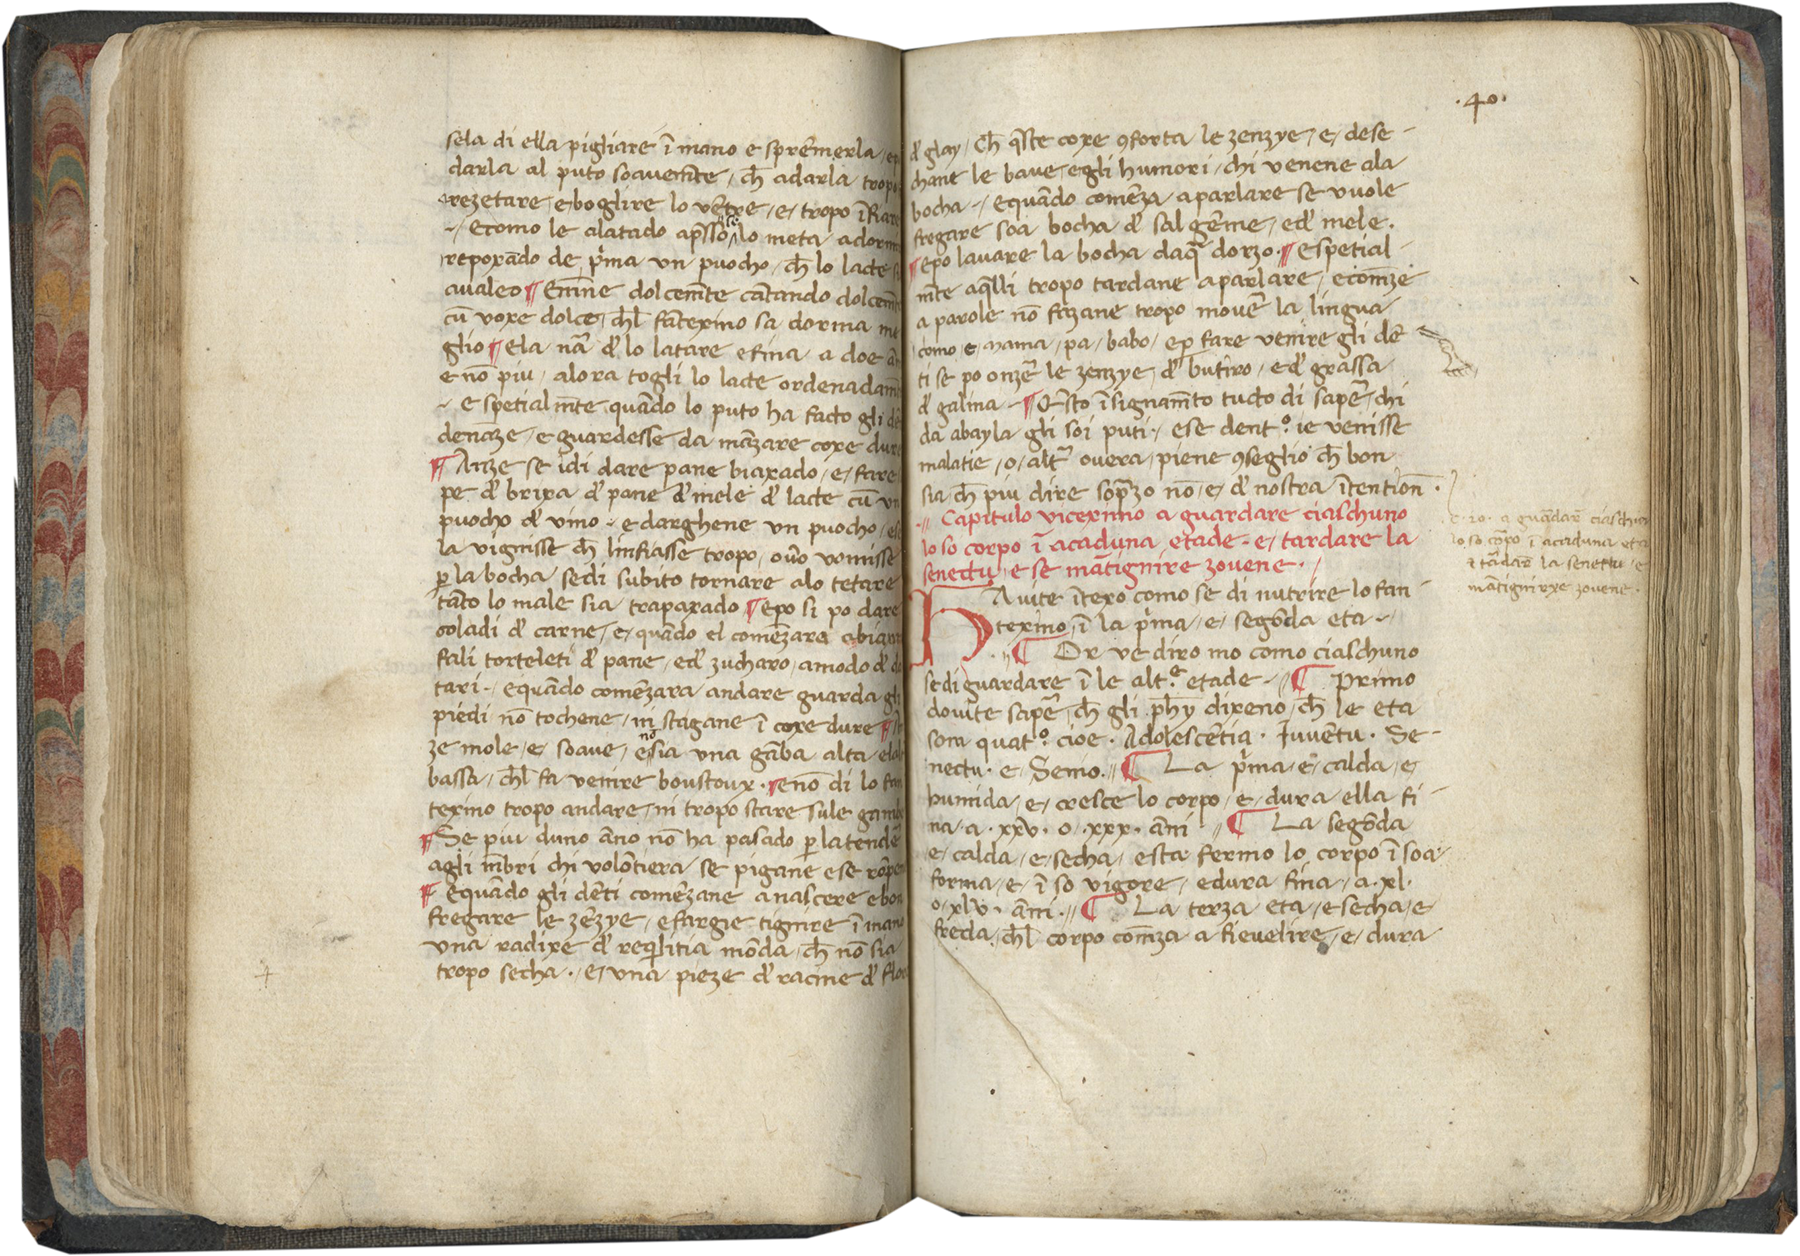 sela di ella pigliare ī mano e sprēmerla, e
darla al puto soavemēte, ch̄ adarla tropo
rezetare, e boglire lo vētre, e, tropo īfiare
Ecomo le alatado ap̄sso, nō lo meta adormi
repoxādo de p̄ma un puocho, ch̄ lo lacte
avaleo ¶ Enīne dolcemēte cātando dolcemēte
cū voxe dolce, ch̄l fātexino sa dorma me
glio ¶ Ela nāa d̄ lo latare efina a doe ān
e nō piu, alora togli lo lacte ordenadamēte
e spetialmēte quādo lo puto ha facto gli dē
denāze, e guardesse da māzare coxe dure
¶ Anze se idi dare pane biaxado, e, fare
pe d̄ brixa d̄ pane d̄ mele d̄ lacte cū un
puocho d̄ vino, e darghene un puocho, e se
la vignisse ch̄ linfiasse tropo, ov̄o vomisse
p̱ la bocha sedi subito tornare alo tetare
tāto lo male sia trapaxado ¶ epo si po dare
coladi d̄ carne, e, quādo el comēzara abian
fali torteleti d̄ pane, ed̄ zucharo, amodo d̄ da
tari. equādo comēzara andare guarda gli
piedi nō tochene, nī stagane ī coxe dure ¶ 
ze mole, e, soave, e nō sia una gāba alta, ela
bassa, ch̄l fa venire boustoux. ¶ enō di lo fan
texino tropo andare, ni tropo stare sule gambe
¶ Se piu duno āno nō ha pasado p̱ la tendē
agli mēbri chi volōtiera se pigane e se rōpe
¶ Equādo gli dēti comēzane anascere e bon
fregare le zēzye, e fargie tignire ī mano
una radixe d̄ reqlitia mōda, ch̄ nō sia
tropo secha. e, una pieze d̄ racine d̄ flor
.40.
d̄ glay, Ch̄ q̄ste coxe 9forta le zenzye, e, dese-
chane le bave, egli humori, chi venene ala
bocha, equādo comēza aparlare se vuole
fregare soa bocha d̄ sal gēme, ed̄ mele.
¶ epo lavare la bocha daq̄ dorzo. ¶ Espetial-
mēte aq̄lli tropo tardane aparlare, ecomēze
a parole nō fazane tropo movē la lingua
como, e, mama, pa, babo, ep̱ fare venire gli dē
ti se po onzē le zenzye, d̄ butiro, ed̄ grassa
d̄ galina. ¶ Q̄sto īsignamēto tucto di sapē, chi
da abayla gli soi puti, ese dent.º ie venisse
malatie, o, alt̄ overa, piene 9seglio ch̄ bon
sia, ch̄ piu dire sop̄zo nō, e, d̄ nostra ītentiōn.
¶ Capitulo viceximo a guardare ciaschuno
lo so corpo ī acaduna etade. e, tardare la
senectu, e se mātignire zovene.
c. 20. a guādar̄ ciaschuno
lo so corpo ī acaduna eta
e tādar̄ la senettu, e
mātignirxe zovene.
HAvite ītexo como se di nutrire lo fan
texino, ī la p̄ma, e, segōda eta.
¶ Or ve diro mo como ciaschuno
se di guardare ī le alt.e etade. ¶ Primo
dovite sapē, ch̄ gli phȳ dixeno, ch̄ le eta
som quat.º cioe. Adolescētia. Iuvētu. Se-
nectu. e, Senio. ¶ La p̄ma, e, calda, e,
humida, e, cresce lo corpo, e, dura ella fi-
na. a. xxv. o. xxx. āni. ¶ La segōda
e, calda, e, secha, e sta fermo lo corpo ī soa
forma, e, ī so vigore, edura fina, a. xl.
o. xlv. āni. ¶ La terza eta, e secha, e
freda, ch̄l corpo comēza a fievelire, e, dura